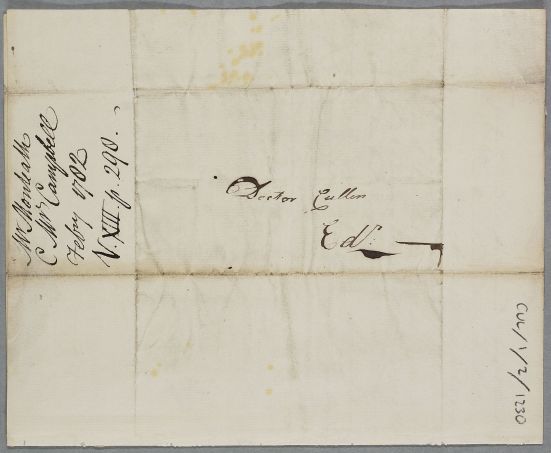 Mr Monteath
C. Mr Campbell
Febry 1782
V. XIII p. 290.
Doctor Cullen
Edr.
CUL/1/2/1230